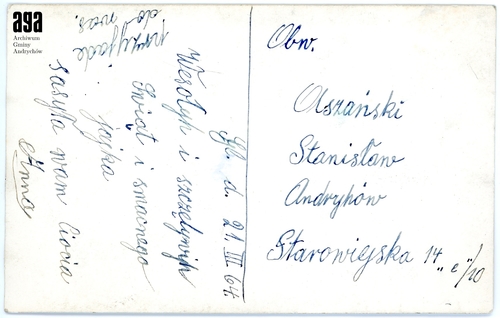 aga
Archiwum
Gminy
Andrychów
Gl. d. 21. III 64.
Wesołych i szczęśliwych
Świąt i smacznego
jajka
sasyła wam Ciocia
Anna
przyjadę
do was.
Obw.
Olszański
Stanisław
Andryhów
Starowiejska 14 "c"/20